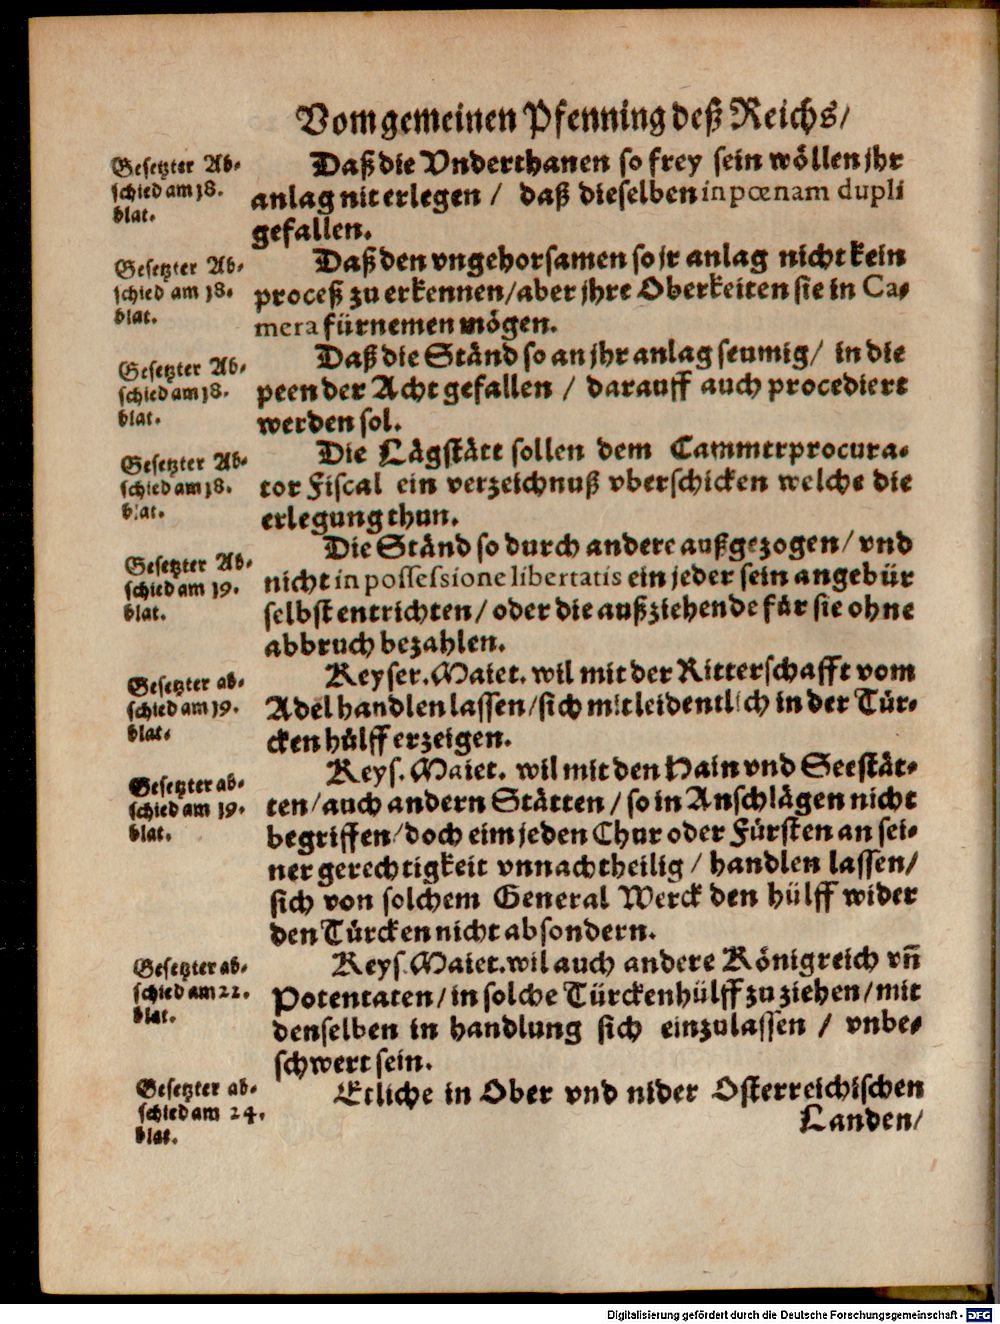 Vom gemeinen Pfenning deß Reichs/
Gesetzter Ab-
schied am 18.
blat.
Daß die Vnderthanen so frey sein wöllen jhr
anlag nit erlegen / daß dieselben in pœnam dupli
gefallen.
Gesetzter Ab-
schied am 18.
blat.
Daß den vngehorsamen so jr anlag nicht kein
proceß zu erkennen/ aber jhre Oberkeiten sie in Ca-
mera fürnemen mögen.
Gesetzter Ab-
schied am 18.
blat.
Daß die Ständ so an jhr anlag seumig/ in die
peen der Acht gefallen / darauff auch procediert
werden sol.
Gesetzter Ab-
schied am 18.
blat.
Die Lägstätt sollen dem Cammerprocura-
tor Fiscal ein verzeichnuß vberschicken welche die
erlegung thun.
Gesetzter Ab-
schied am 19.
blat.
Die Ständ so durch andere außgezogen/ vnd
nicht in possessione libertatis ein jeder sein angebür
selbst entrichten/ oder die außziehende für sie ohne
abbruch bezahlen.
Gesetzter ab-
schied am 19.
blat.
Keyser. Maiet. wil mit der Ritterschafft vom
Adel handlen lassen/ sich mitleidentlich in der Tür-
cken hülff erzeigen.
Gesetzter ab-
schied am 19.
blat.
Keys. Maiet. wil mit den Hain vnd Seestät-
ten/ auch andern Stätten / so in Anschlägen nicht
begriffen/ doch eim jeden Chur oder Fürsten an sei-
ner gerechtigkeit vnnachtheilig / handlen lassen/
sich von solchem General Werck den hülff wider
den Türcken nicht absondern.
Gesetzter ab-
schied am 22.
blat.
Keys. Maiet. wil auch andere Königreich vñ
Potentaten/ in solche Türckenhülff zu ziehen/ mit
denselben in handlung sich einzulassen / vnbe-
schwert sein.
Gesetzter ab-
schied am 24.
blat.
Etliche in Ober vnd nider Osterreichischen
Landen/
Digitalisierung gefördert durch die Deutsche Forschungsgemeinschaft - DFG